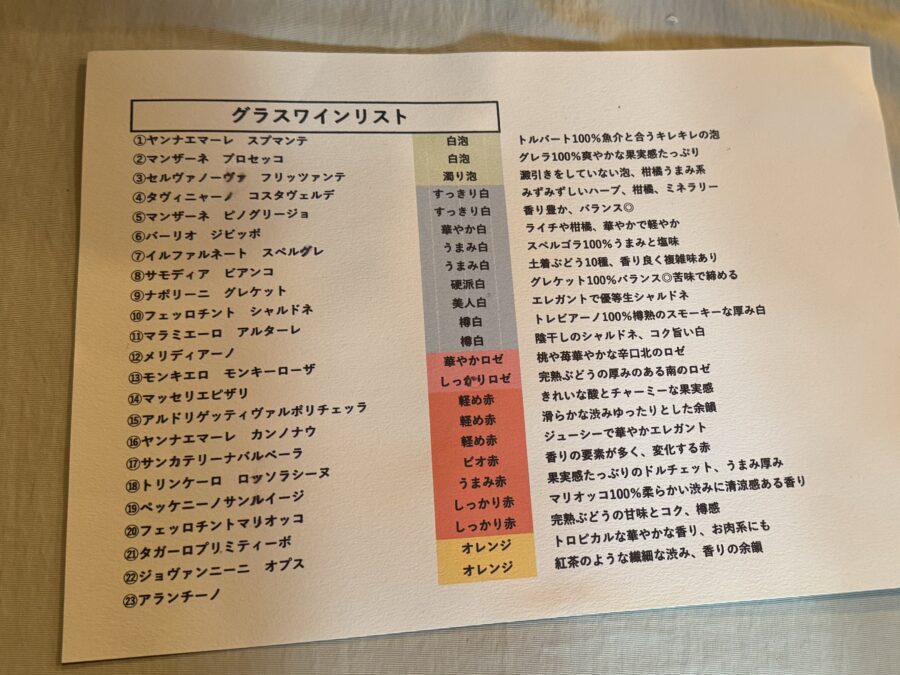 グラスワインリスト
①ヤンナエマーレ　スプマンテ　白泡　トルバート100%魚介と合うキレキレの泡
②マンザーネ　プロセッコ　白泡　グレラ100%爽やかな果実感たっぷり
③セルヴァノーヴァ　フリッツァンテ　濁り泡　澱引きをしていない泡、柑橘うまみ系
④タヴィニャーノ　コスタヴェルデ　すっきり白　みずみずしいハーブ、柑橘、ミネラリー
⑤マンザーネ　ピノグリージョ　すっきり白　香り豊か、バランス◎
⑥バーリオ　ジビッボ　華やか白　ライチや柑橘、華やかで軽やか
⑦イルファルネート　スペルグレ　うまみ白　スペルゴラ100%うまみと塩味
⑧サモディア　ビアンコ　うまみ白　土着ぶどう10種、香り良く複雑味あり
⑨ナポリーニ　グレケット　硬派白　グレケット100%バランス◎苦味で締める
⑩フェッロチント　シャルドネ　美人白　エレガントで優等生シャルドネ
⑪マラミエーロ　アルターレ　樽白　トレビアーノ100%樽熟のスモーキーな厚み白
⑫メリディアーノ　樽白　陰干しのシャルドネ、コク旨い白
⑬モンキエロ　モンキーローザ　華やかロゼ　桃や苺華やかな辛口北のロゼ
⑭マッセリエピザリ　しっかりロゼ　完熟ぶどうの厚みのある南のロゼ
⑮アルドリゲッティヴァルポリチェッラ　軽め赤　きれいな酸とチャーミーな果実感
⑯ヤンナエマーレ　カンノナウ　軽め赤　滑らかな渋みゆったりとした余韻
⑰サンカテリーナバルベーラ　軽め赤　ジューシーで華やかエレガント
⑱トリンケーロ　ロッソラシーヌ　ビオ赤　香りの要素が多く、変化する赤
⑲ペッケニーノサンルイージ　うまみ赤　果実感たっぷりのドルチェット、うまみ厚み
⑳フェッロチントマリオッコ　しっかり赤　マリオッコ100%柔らかい渋みに清涼感ある香り
㉑タガーロプリミティーボ　しっかり赤　完熟ぶどうの甘味とコク、樽感
㉒ジョヴァンニーニ　オプス　オレンジ　トロピカルな華やかな香り、お肉系にも
㉓アランチーノ　オレンジ　紅茶のような繊細な渋み、香りの余韻